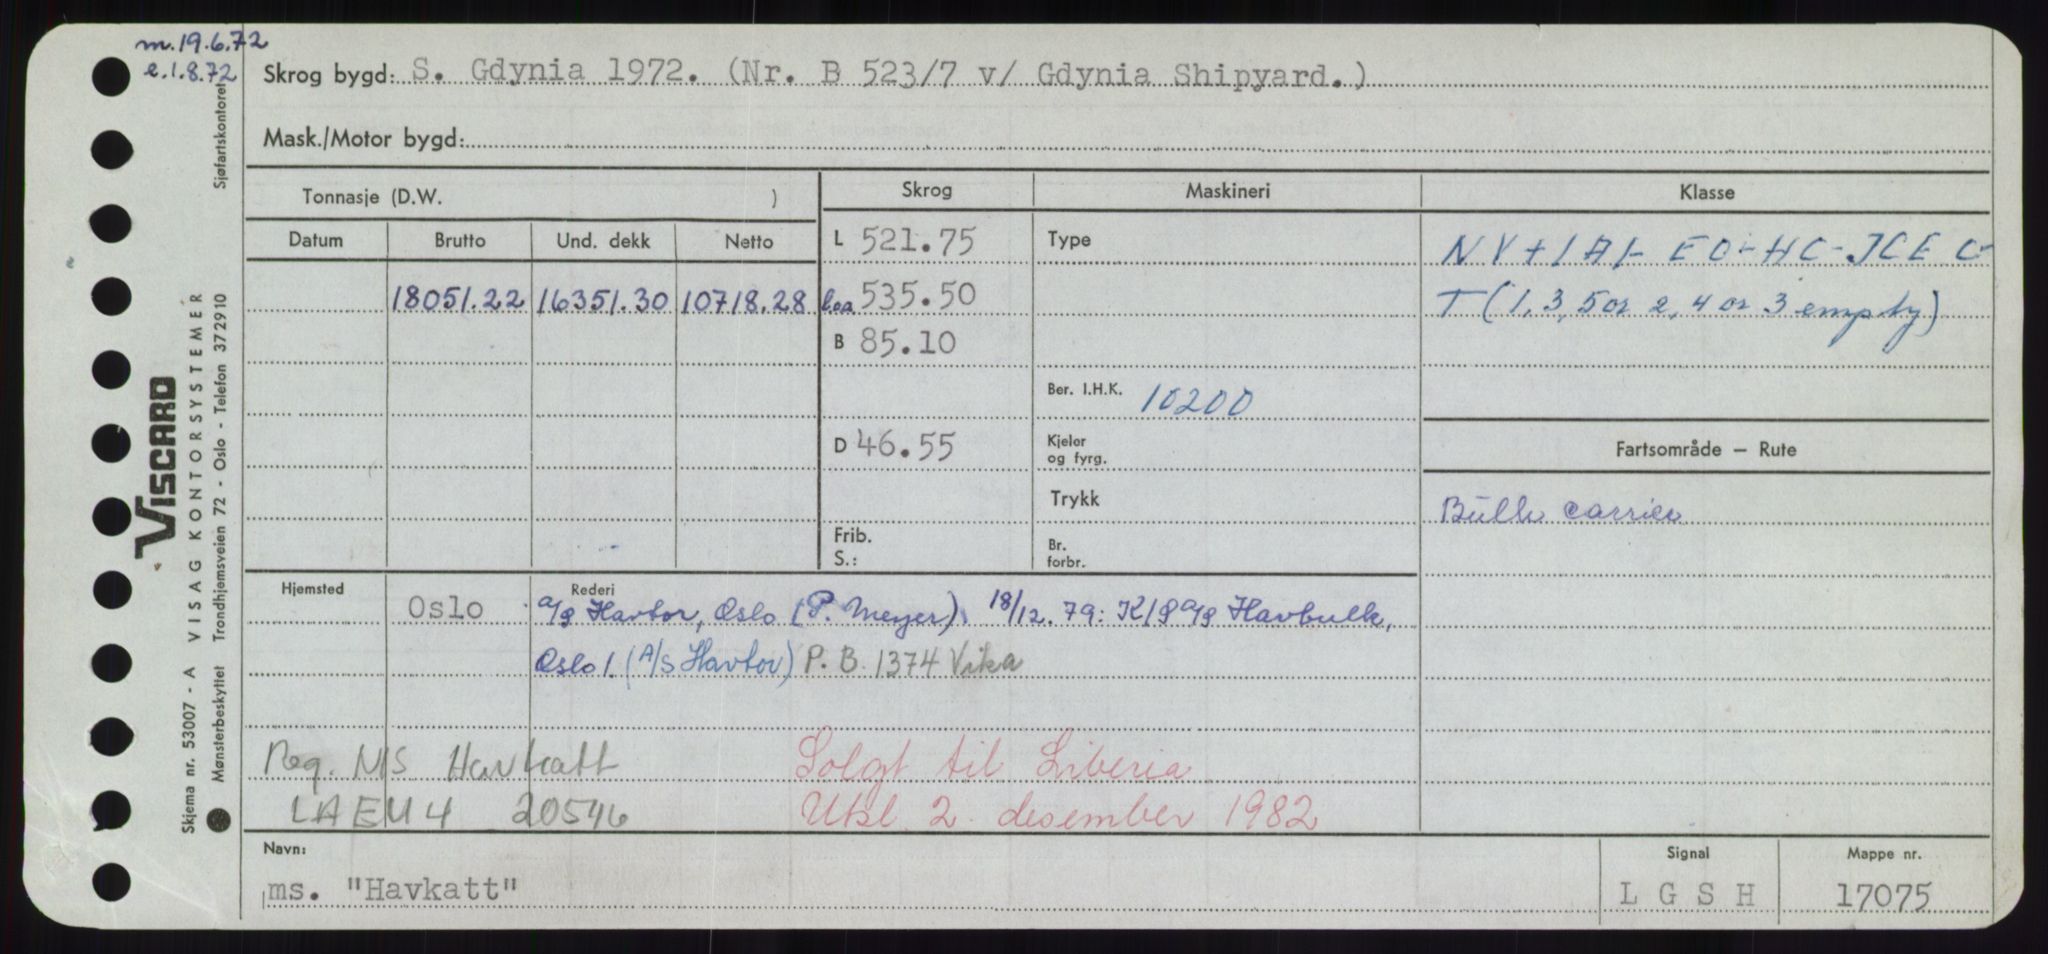 m. 19.6.72
e. 1.8.72
Skrog bygd: S. Gdynia 1972. (Nr. B 523/7 v/ Gdynia Shipyard.)
Mask./Motor bygd:
Tonnasje (D.W. )
Skrog Maskineri Klasse
Datum Brutto Und. dekk Netto
L 521.75 Type NV+1A1- EO-HC-ICE C-
18051.22 16351.30 10718.28 loa 535.50 T (1, 3, 5 or 2, 4 or 3 empty)
B 85.10
Ber. I.H.K. 10200
D 46.55 Kjeler og fyrg. Fartsområde — Rute
Trykk Bulk carrier
Frib. S.: Br. forbr.
Hjemsted Rederi
Oslo a/s Havtor, Oslo (P. Meyer) 18/12.79: K/S a/s Havbulk,
Oslo 1. (A/S Havtor) P.B. 1374 Vika
Reg. NIS Havkatt Solgt til Liberia
LAEU4 20546 Utsl. 2. desember 1982
Navn: Signal Mappe nr.
ms. "Havkatt" L G S H 17075
Sjøfartskontoret
VISCARD
VISAG KONTORSYSTEMER
Trondhjemsveien 72 - Oslo - Telefon 372910
Skjema nr. 53007 - A
Mønsterbeskyttet